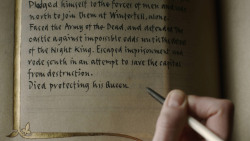 Pledged himself to the forces of men and rode
north to join them at Winterfell, alone.
Faced the Army of the Dead, and defended the
castle against impossible odds until the defeat
of the Night King. Escaped imprisonment and
rode south in an attempt to save the capital
from destruction.
Died protecting his Queen.